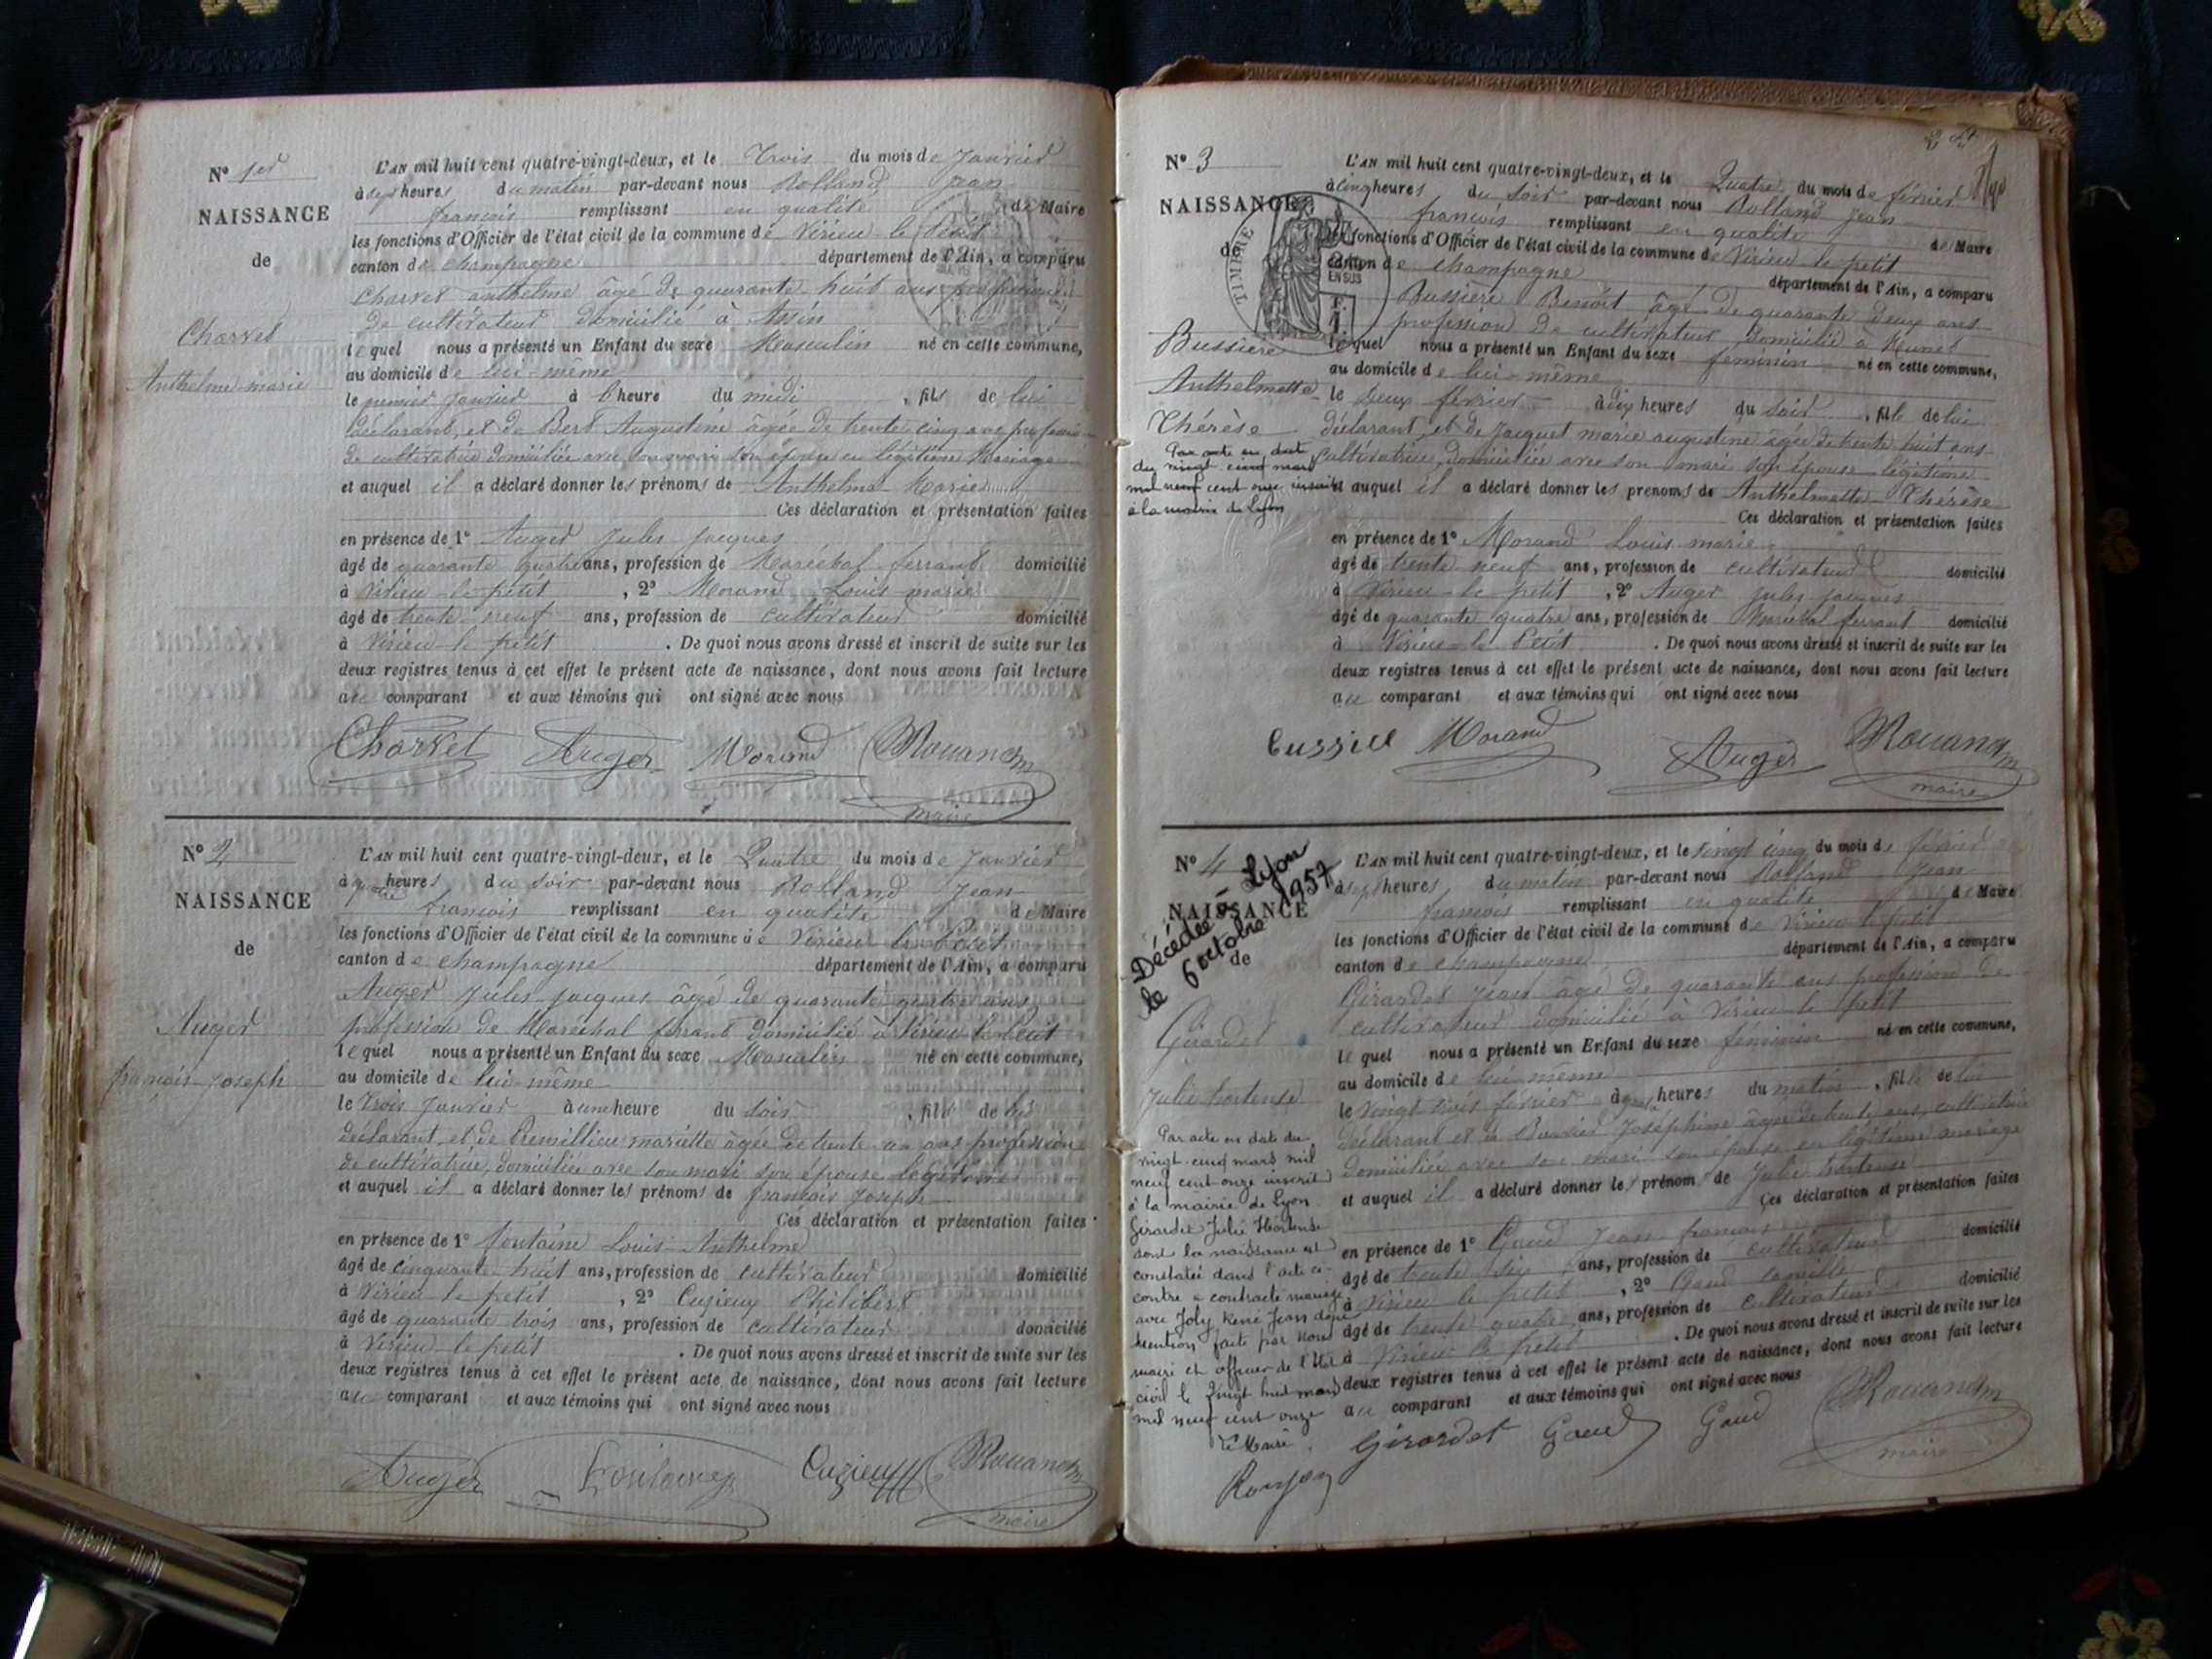 N° 1er
NAISSANCE
de
Charvet
Anthelme marie
L'AN mil huit cent quatre-vingt-deux, et le Trois du mois de Janvier
à heures du matin par-devant nous Rolland Jean
françois remplissant en qualité de Maire
les fonctions d'Officier de l'état civil de la commune de Virieu le Petit
canton de Champagne département de l'Ain, a comparu
Charvet anthelme âgé de quarante huit ans profession
de cultivateur domicilié à Assin
lequel nous a présenté un Enfant du sexe Masculin né en cette commune,
au domicile de lui-même
le premier Janvier à heure du midi, fils de lui
déclarant, et de Bert Augustine âgée de trente cinq ans profession
de cultivatrice domiciliée avec son mari son épouse en légitime Mariage
et auquel il a déclaré donner les prénoms de Anthelme Marie
Ces déclaration et présentation faites
en présence de 1° Auger Jules Jacques
âgé de quarante quatre ans, profession de Maréchal ferrant domicilié
à Virieu-le-petit, 2° Morand Louis marie
âgé de trente neuf ans, profession de cultivateur domicilié
à Virieu le petit. De quoi nous avons dressé et inscrit de suite sur les
deux registres tenus à cet effet le présent acte de naissance, dont nous avons fait lecture
au comparant et aux témoins qui ont signé avec nous
Charvet Auger Morand
maire
N° 2
NAISSANCE
de
Auger
françois-Joseph
L'AN mil huit cent quatre-vingt-deux, et le Quatre du mois de Janvier
à quatre heures du soir par-devant nous Rolland Jean
françois remplissant en qualité de Maire
les fonctions d'Officier de l'état civil de la commune de Virieu le Petit
canton de Champagne département de l'Ain, a comparu
Auger Jules Jacques âgé de quarante quatre ans
profession de Maréchal ferrant domicilié à Virieu le Petit
lequel nous a présenté un Enfant du sexe Masculin né en cette commune,
au domicile de lui-même
le Trois Janvier à une heure du soir, fils de lui
déclarant, et de Premillieu mariette âgée de trente un ans profession
de cultivatrice, domiciliée avec son mari son épouse légitime
et auquel il a déclaré donner les prénoms de françois Joseph
Ces déclaration et présentation faites
en présence de 1° fontaine Louis Anthelme
âgé de cinquante huit ans, profession de cultivateur domicilié
à Virieu-le-petit, 2° Cuzieux Philibert
âgé de quarante trois ans, profession de cultivateur domicilié
à Virieu le petit. De quoi nous avons dressé et inscrit de suite sur les
deux registres tenus à cet effet le présent acte de naissance, dont nous avons fait lecture
au comparant et aux témoins qui ont signé avec nous
Auger Fontaine Cuzieux
maire
N° 3
NAISSANCE
de
TIMBRE
EN SUS
Bussière
Anthelmette
Thérèse
Par acte en date
du vingt cinq mars
mil neuf cent onze inscrit
à la mairie de Lyon
L'AN mil huit cent quatre-vingt-deux, et le Quatre du mois de février
à cinq heures du soir par-devant nous Rolland Jean
françois remplissant en qualité de Maire
les fonctions d'Officier de l'état civil de la commune de Virieu le petit
canton de Champagne département de l'Ain, a comparu
Bussière Benoît âgé de quarante deux ans
profession de cultivateur domicilié à Munet
lequel nous a présenté un Enfant du sexe féminin né en cette commune,
au domicile de lui-même
le Deux février à dix heures du soir, fille de lui
déclarant, et de Jacquet marie augustine âgée de trente huit ans
cultivatrice, domiciliée avec son mari son épouse légitime
et auquel il a déclaré donner les prénoms de Anthelmette Thérèse
Ces déclaration et présentation faites
en présence de 1° Morand Louis marie
âgé de trente neuf ans, profession de cultivateur domicilié
à Virieu le petit, 2° Auger Jules Jacques
âgé de quarante quatre ans, profession de Maréchal ferrant domicilié
à Virieu-le Petit. De quoi nous avons dressé et inscrit de suite sur les
deux registres tenus à cet effet le présent acte de naissance, dont nous avons fait lecture
au comparant et aux témoins qui ont signé avec nous
Morand Auger
maire
N° 4
NAISSANCE
de
Décédée à Lyon
le 6 octobre 1957
Girardet
Julie hortense
Par acte en date du
vingt-cinq mars mil
neuf cent onze inscrit
à la mairie de Lyon
Girardet Julie Hortense
dont la naissance est
constatée dans l'acte ci-
contre a contracté mariage
avec Joly René Jean
Mention faite par nous
maire et officier de l'état
civil le Vingt huit mars
mil neuf cent onze
Le Maire
L'AN mil huit cent quatre-vingt-deux, et le vingt cinq du mois de février
à sept heures du matin par-devant nous Rolland Jean
françois remplissant en qualité de Maire
les fonctions d'Officier de l'état civil de la commune de Virieu le petit
canton de Champagne département de l'Ain, a comparu
Girardet Jean âgé de quarante ans profession de
cultivateur domicilié à Virieu le petit
lequel nous a présenté un Enfant du sexe féminin né en cette commune,
au domicile de lui-même
le Vingt trois février à heures du matin, fille de lui
déclarant et de Joséphine âgée de trente ans, cultivatrice
domiciliée avec son mari son épouse en légitime mariage
et auquel il a déclaré donner les prénoms de Julie hortense
Ces déclaration et présentation faites
en présence de 1° Gaud Jean françois
âgé de trente six ans, profession de cultivateur domicilié
à Virieu le petit, 2° Gaud Camille
âgé de trente quatre ans, profession de cultivateur domicilié
à Virieu le petit. De quoi nous avons dressé et inscrit de suite sur les
deux registres tenus à cet effet le présent acte de naissance, dont nous avons fait lecture
au comparant et aux témoins qui ont signé avec nous
Girardet Gaud Gaud
maire